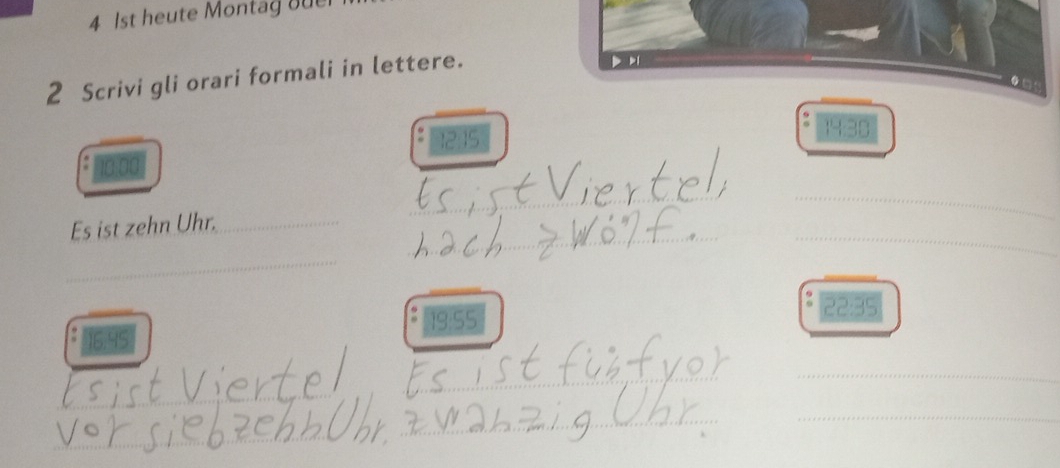 4 Ist heute Montag oder
2 Scrivi gli orari formali in lettere.
10:00
12:15
14:30
Es ist zehn Uhr.
Es ist Viertel,
nach zwölf.
16:45
19:55
22:35
Es ist Viertel
vor siebzehn Uhr.
Es ist füfvor
zwanzig Uhr.